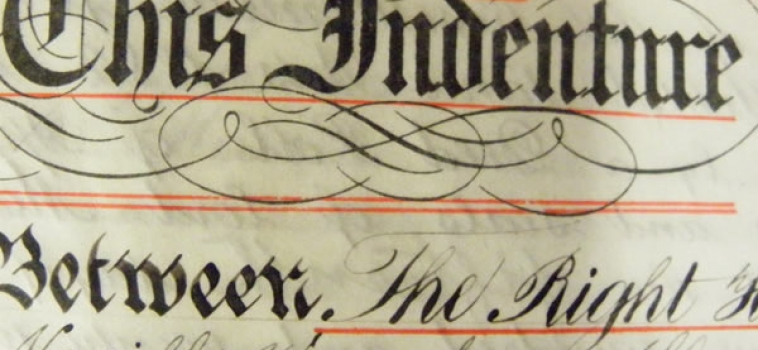 This Indenture
Between. The Right